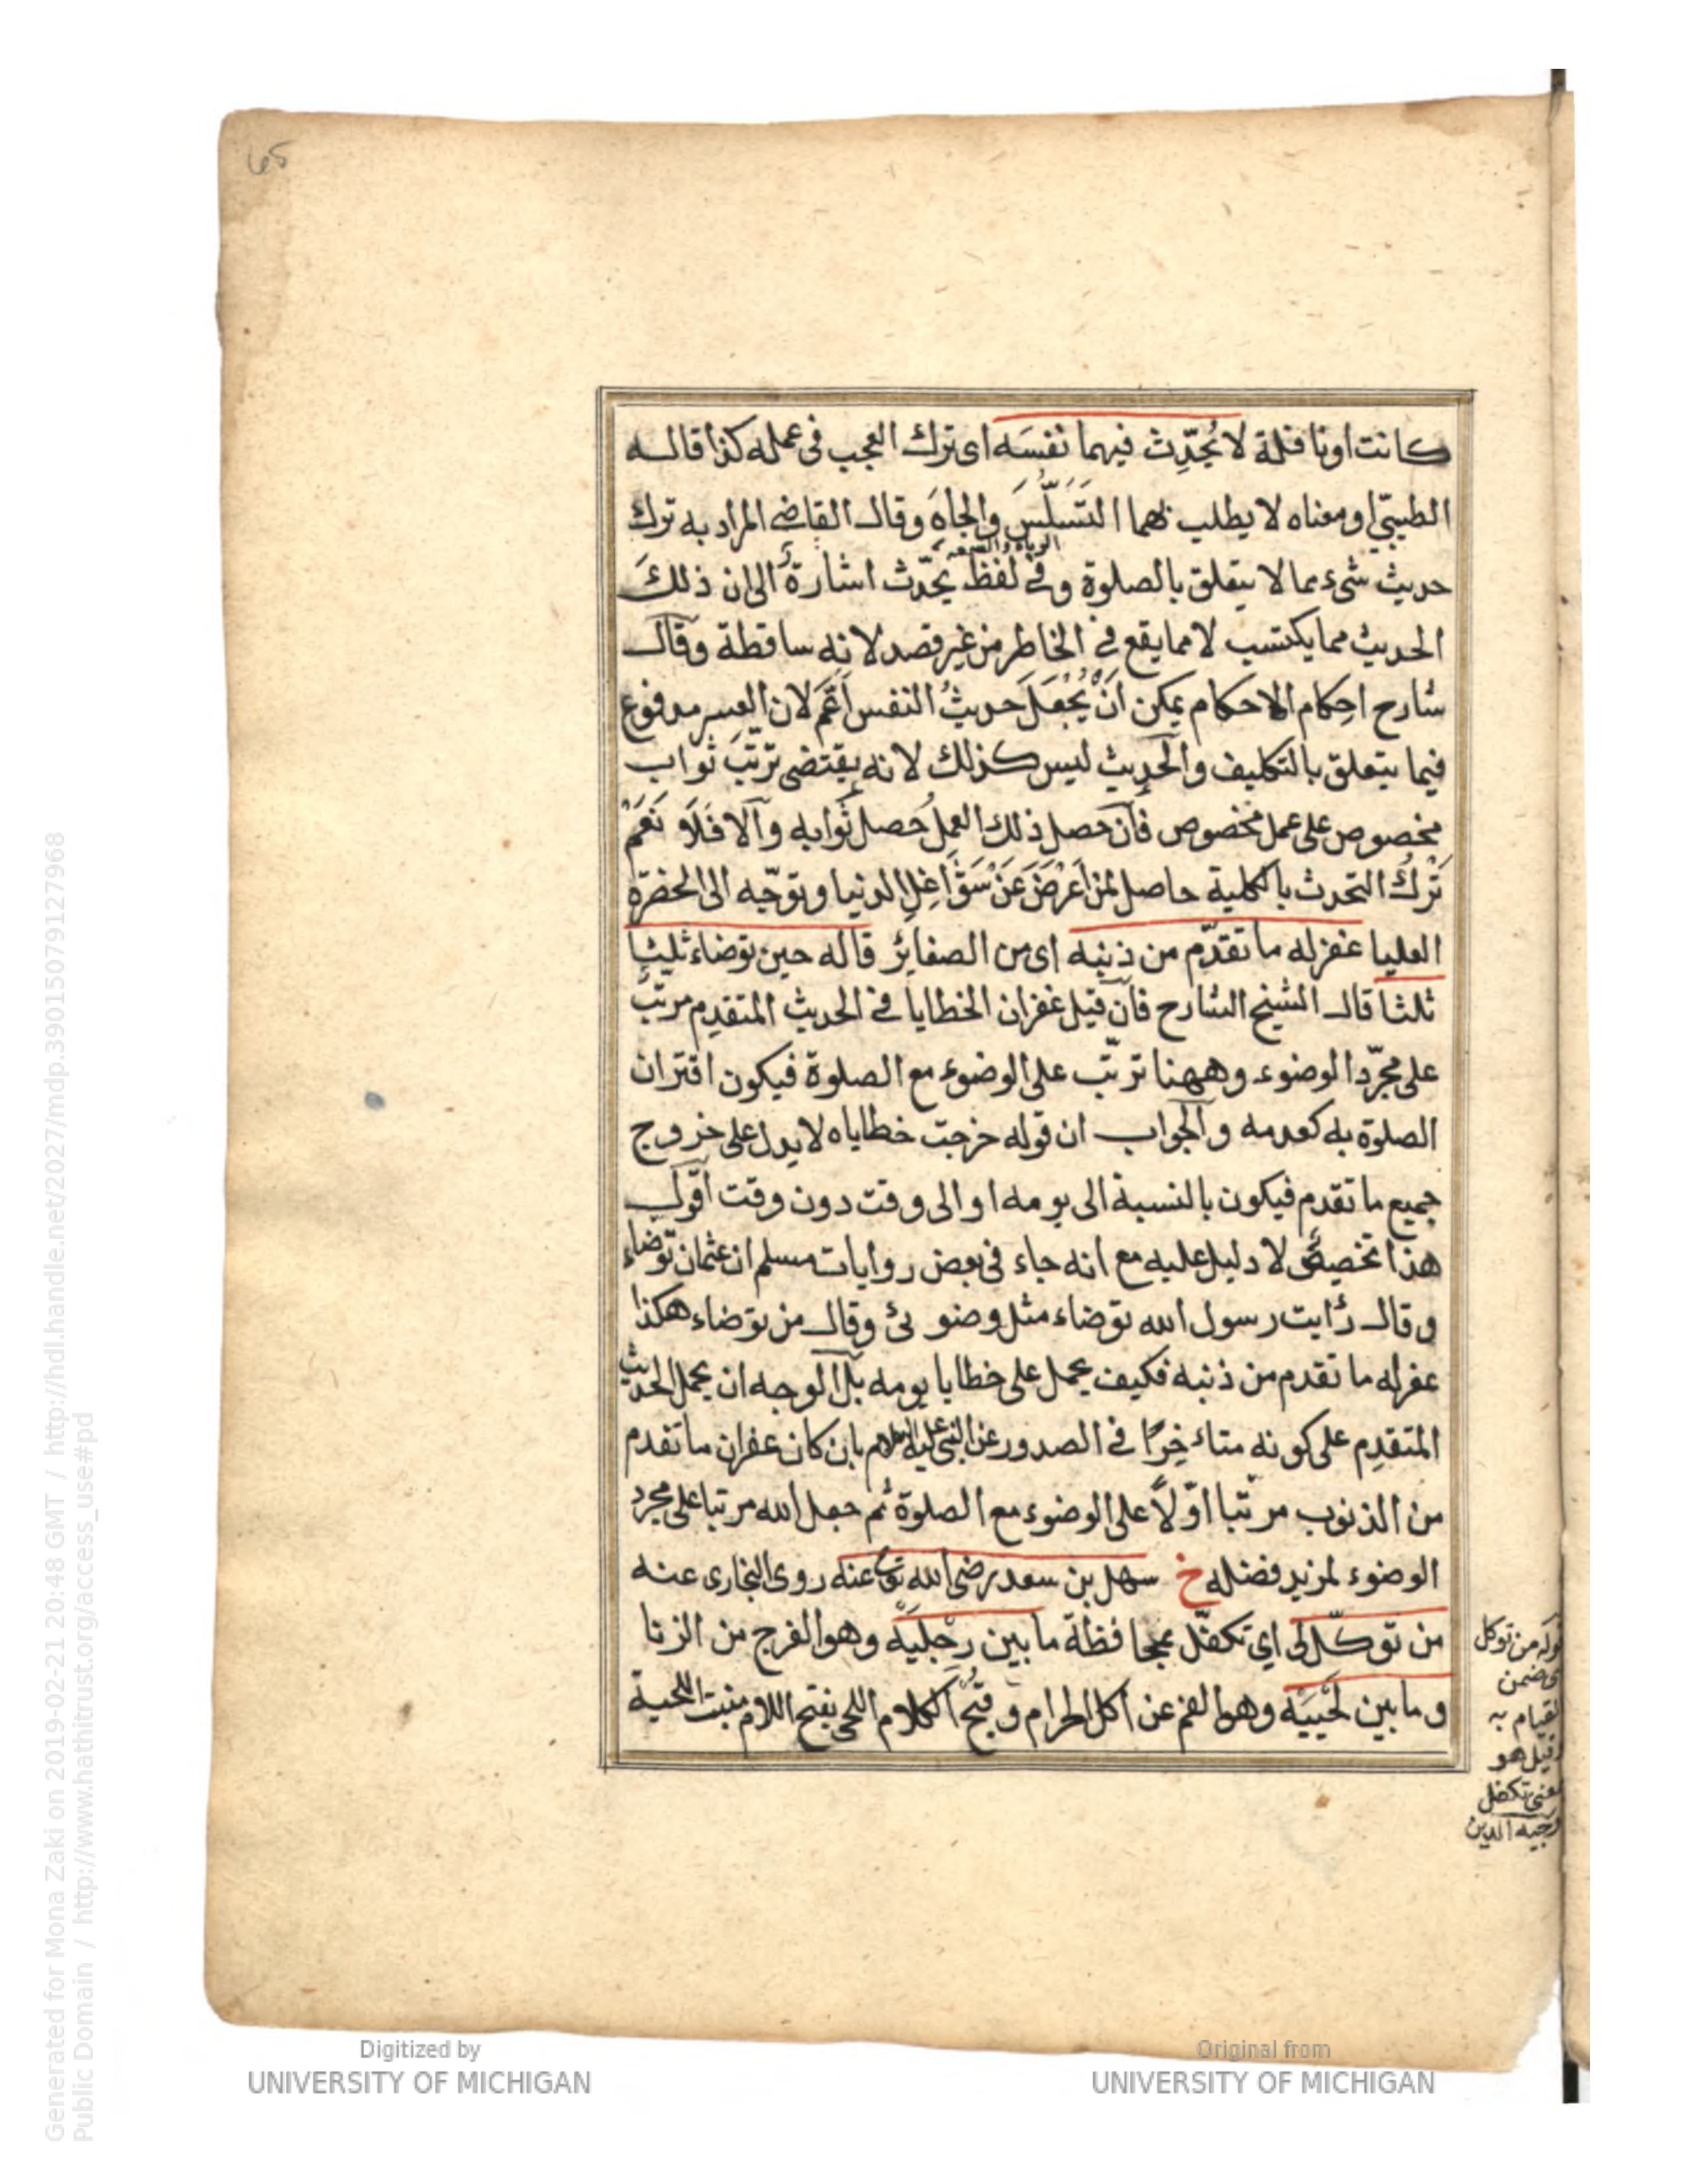 65
كانت او نافلة لا يُحَدِّث فيهما نفسَه اى ترك العجب فى عمله كذا قاله
الطيبىّ او معناه لا يطلب بهما التَسَلُّسَ والجاهَ وقال القاضى المراد به ترك
الرياء والسمعه
حديث شىء مما لا يتعلق بالصلوة وفى لفظ يحدّث اشارة الى ان ذلك
الحديث مما يكتسب لا مما يقع فى الخاطر من غير قصد لانه ساقطة وقال
شارح احكام الاحكام يمكن انْ يُجْعَلَ حديثُ النفس اَعَمَّ لان العسر مدفوع
فيما يتعلق بالتكليف والحديث ليس كذلك لانه يقتضى ترتّبَ ثواب
مخصوص على عمل مخصوص فان حصل ذلك العملُ حصل ثوابه والا فلا نَعَمْ
تَرْكُ التحدث بالكلية حاصل لمن اَعْرَضَ عَنْ شَوَاغِلِ الدنيا وتوجّه الى الحضرة
العليا غفر له ما تقدّم من ذنبه اى من الصغاير قاله حين توضاء ثلثا
ثلثا قال الشيخ الشارح فان قيل غفران الخطايا فى الحديث المتقدم مرتب
على مجرّد الوضوء وههنا ترتّب على الوضوء مع الصلوة فيكون اقتران
الصلوة به كعدمه والجواب ان قوله خرجت خطاياه لا يدل على خروج
جميع ما تقدم فيكون بالنسبة الى يومه او الى وقت دون وقت اقول
هذا تخصيصٌ لا دليل عليه مع انه جاء فى بعض روايات مسلم ان عثمان توضاء
وقال رأيت رسول الله توضاء مثل وضوئى وقال من توضاء هكذا
غفر له ما تقدم من ذنبه فكيف يحمل على خطايا يومه بل الوجه ان يحمل الحديث
المتقدم على كونه متاءخِرًا فى الصدور عن النبى عليه السلام بان كان غفران ما تقدم
من الذنوب مرتّبا اوّلاً على الوضوء مع الصلوة ثم جعل الله مرتبا على مجرد
الوضوء لمزيد فضله خ سهل بن سعد رضى الله تع عنه روى البخارى عنه
من توكّل لى اي تكفّل بمحافظة ما بين رجليه وهو الفرج من الزنا
وما بين لَحْيَيْه وهو الفم عن اكل الحرام وقبح الكلام اللحى بفتح اللام منبت اللحية
قوله من توكل
اى ضمن
القيام به
وقيل هو
بمعنى تكفل
وجيه الدين
Digitized by
UNIVERSITY OF MICHIGAN
Original from
UNIVERSITY OF MICHIGAN
Generated for Mona Zaki on 2019-02-21 20:48 GMT / http://hdl.handle.net/2027/mdp.39015079127968
Public Domain / http://www.hathitrust.org/access_use#pd